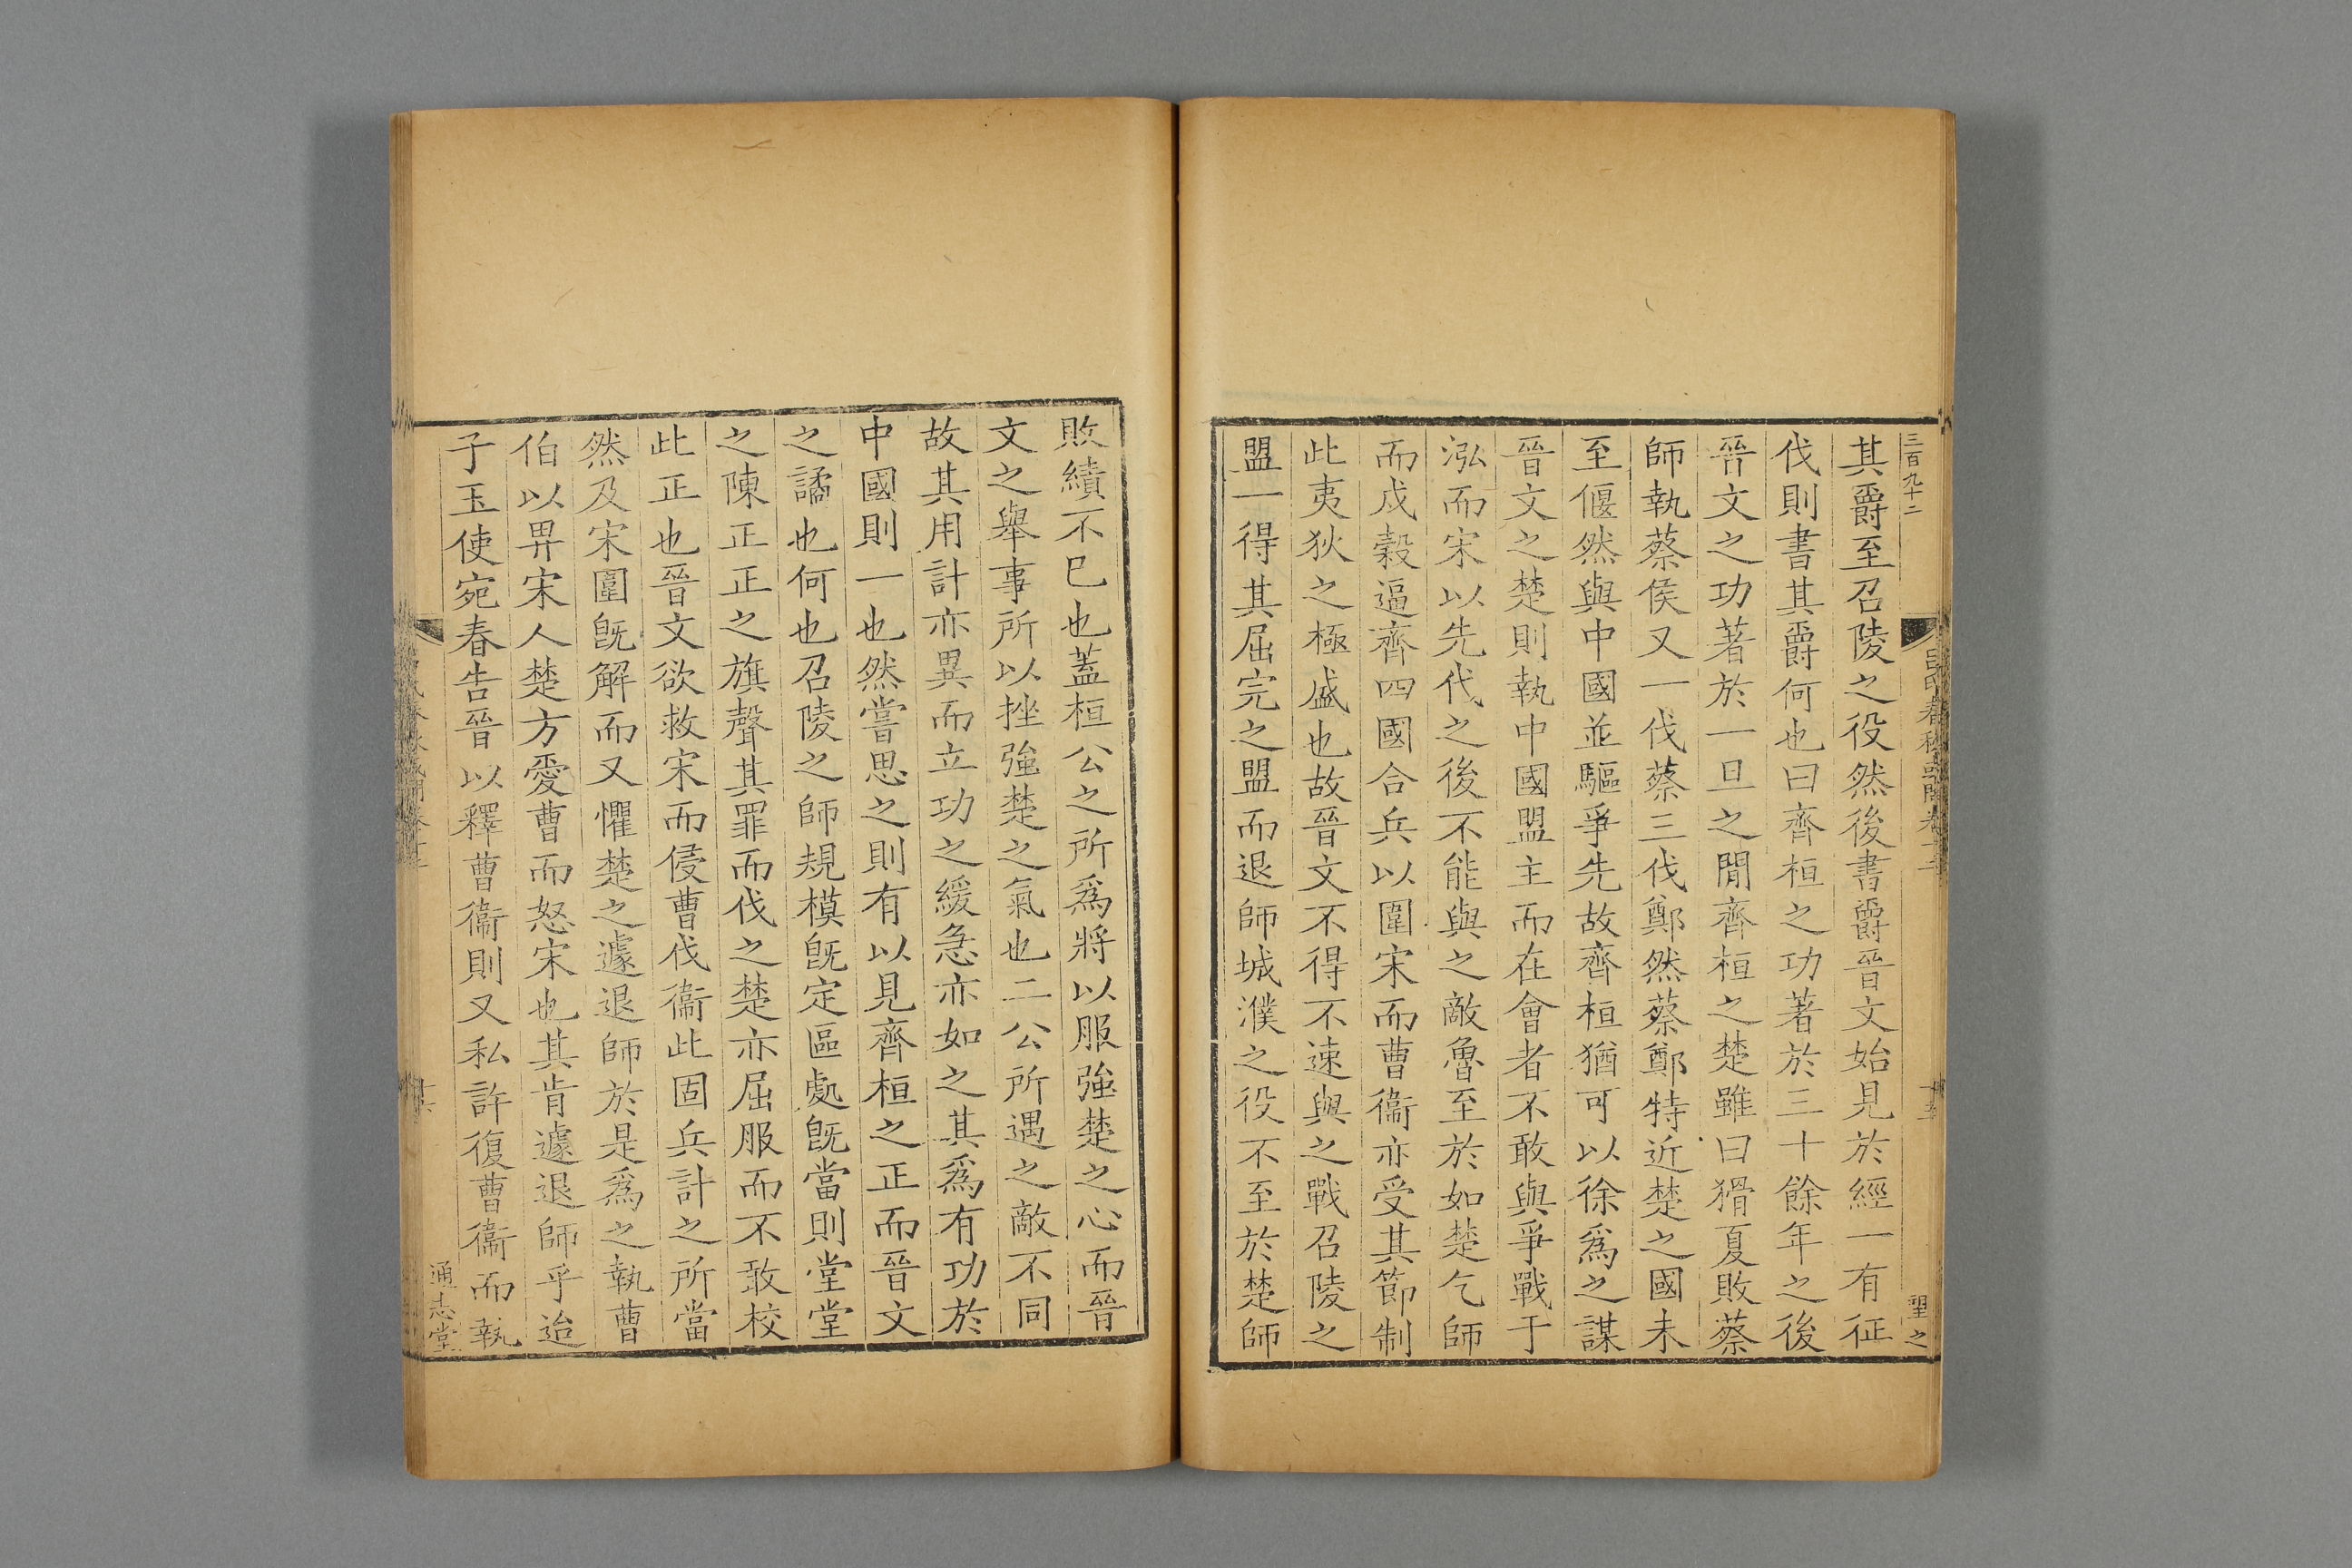 三百九十二
其爵至召陵之役然後書爵晉文始見於經一有征
伐則書其爵何也曰齊桓之功著於三十餘年之後
晉文之功著於一旦之閒齊桓之楚雖曰猾夏敗蔡
師執蔡侯又一伐蔡三伐鄭然蔡鄭特近楚之國未
至偃然與中國並驅爭先故齊桓猶可以徐爲之謀
晉文之楚則執中國盟主而在會者不敢與爭戰于
泓而宋以先代之後不能與之敵魯至於如楚乞師
而戍榖逼齊四國合兵以圍宋而曹衞亦受其節制
此夷狄之極盛也故晉文不得不速與之戰召陵之
盟一得其屈完之盟而退師城濮之役不至於楚師
敗績不巳也蓋桓公之所爲將以服強楚之心而晉
文之舉事所以挫強楚之氣也二公所遇之敵不同
故其用計亦異而立功之緩急亦如之其爲有功於
中國則一也然嘗思之則有以見齊桓之正而晉文
之譎也何也召陵之師規模旣定區處旣當則堂堂
之陳正正之旗聲其罪而伐之楚亦屈服而不敢校
此正也晉文欲救宋而侵曹伐衞此固兵計之所當
然及宋圍旣解而又懼楚之遽退師於是爲之執曹
伯以畀宋人楚方愛曹而怒宋也其肯遽退師乎迨
子玉使宛春告晉以釋曹衞則又私許復曹衞而執
通志堂